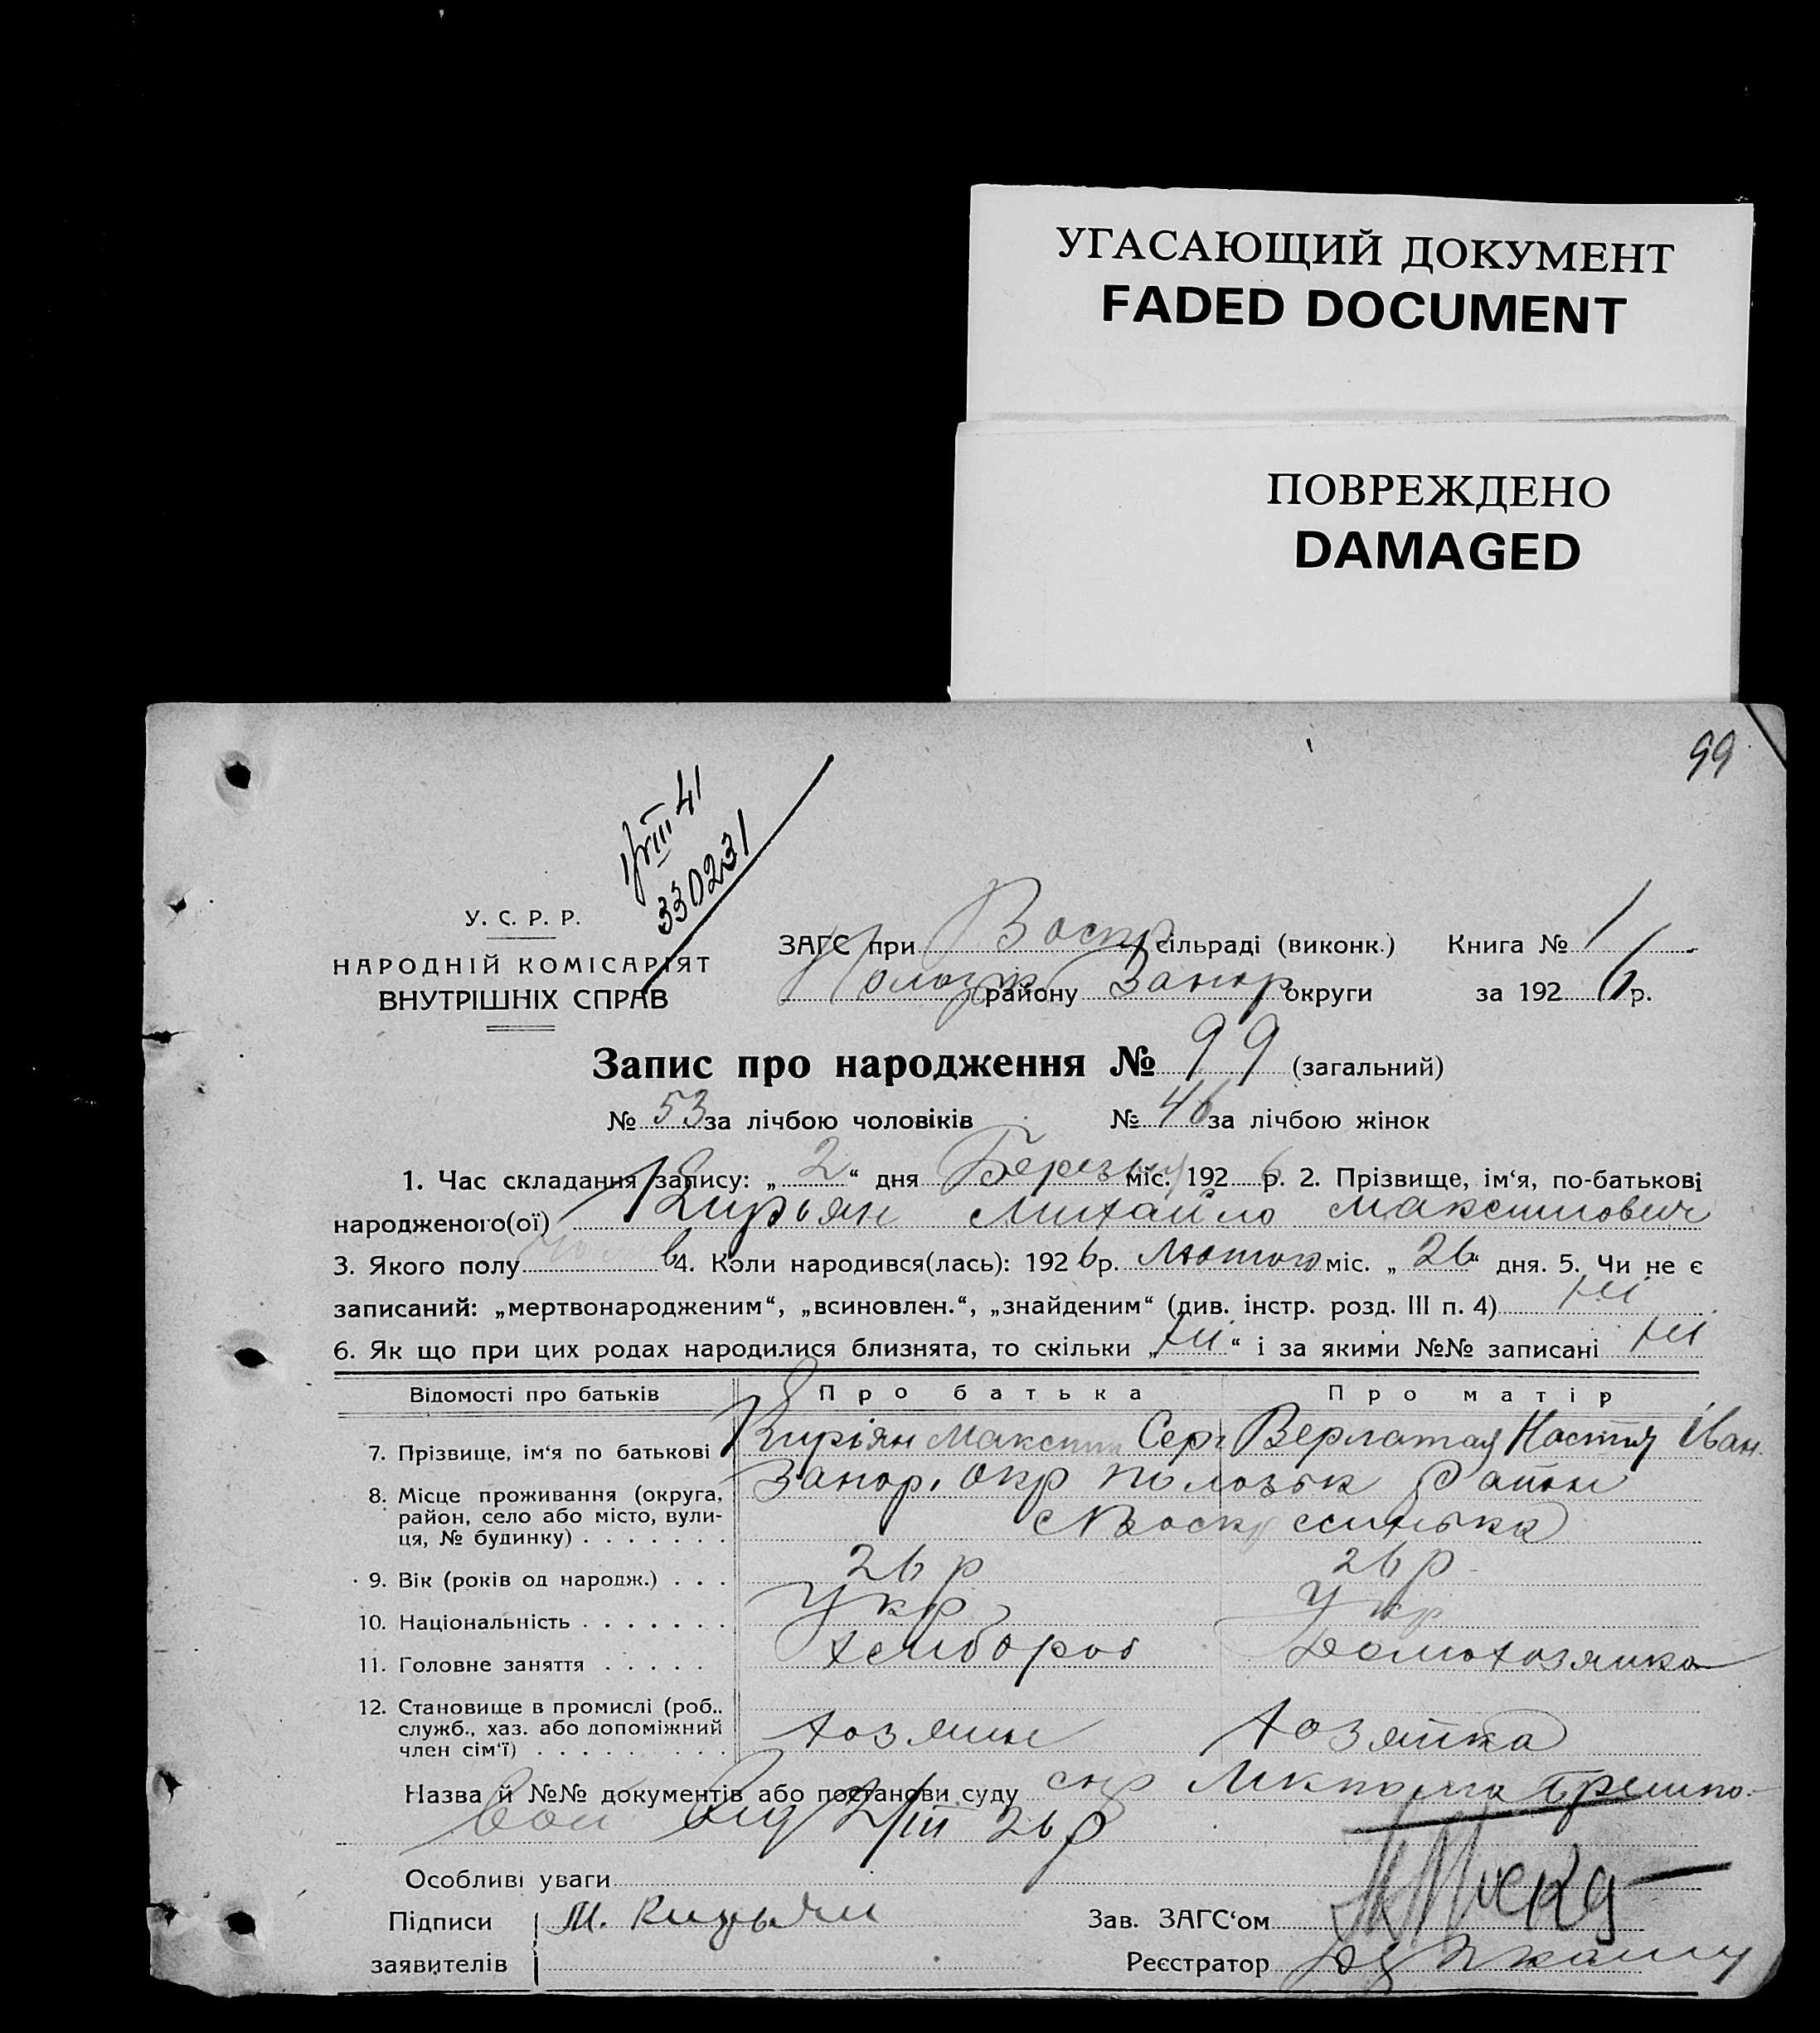 УГАСАЮЩИЙ ДОКУМЕНТ
FADED DOCUMENT
ПОВРЕЖДЕНО
DAMAGED
99
III 41
330231
У. С. Р. Р.
НАРОДНІЙ КОМІСАРІЯТ
ВНУТРІШНІХ СПРАВ
ЗАГС при Воскр сільраді (виконк.) Книга № 1
району Запор округи за 1926 р.
Запис про народження № 99 (загальний)
№ 53 за лічбою чоловіків № 46 за лічбою жінок
1. Час складання запису: „ 2 “ дня Березня міс. 1926 р. 2. Прізвище, ім‘я, по-батькові
народженого(ої) Кирьян Михайло Максимович
3. Якого полу 4. Коли народився(лась): 1926 р. Лютого міс. „ 26 “ дня. 5. Чи не є
записаний: „мертвонародженим“, „всиновлен.“, „знайденим“ (див. інстр. розд. III п. 4) Ні
6. Як що при цих родах народилися близнята, то скільки „ Ні “ і за якими №№ записані Ні
Відомості про батьків Про батька Про матір
7. Прізвище, ім‘я по батькові Кирьян Максим Серг Верлатая Настя Іван.
8. Місце проживання (округа, Запор. Окр Пологськ Район
район, село або місто, вули-
ця, № будинку) . . . . . . .
9. Вік (років од народж.) . . . 26 р 26 р
10. Національність . . . . . . . Укр Укр
11. Головне заняття . . . . . Хлибороб Домохозяйка
12. Становище в промислі (роб..
служб., хаз. або допоміжний Хозяин Хозяйка
член сім‘ї) . . . . . . . . .
Назва й №№ документів або постанови суду
від 2/III 26 р
Особливі уваги
Підписи М. Кирьян Зав. ЗАГС‘ом
заявителів Реєстратор